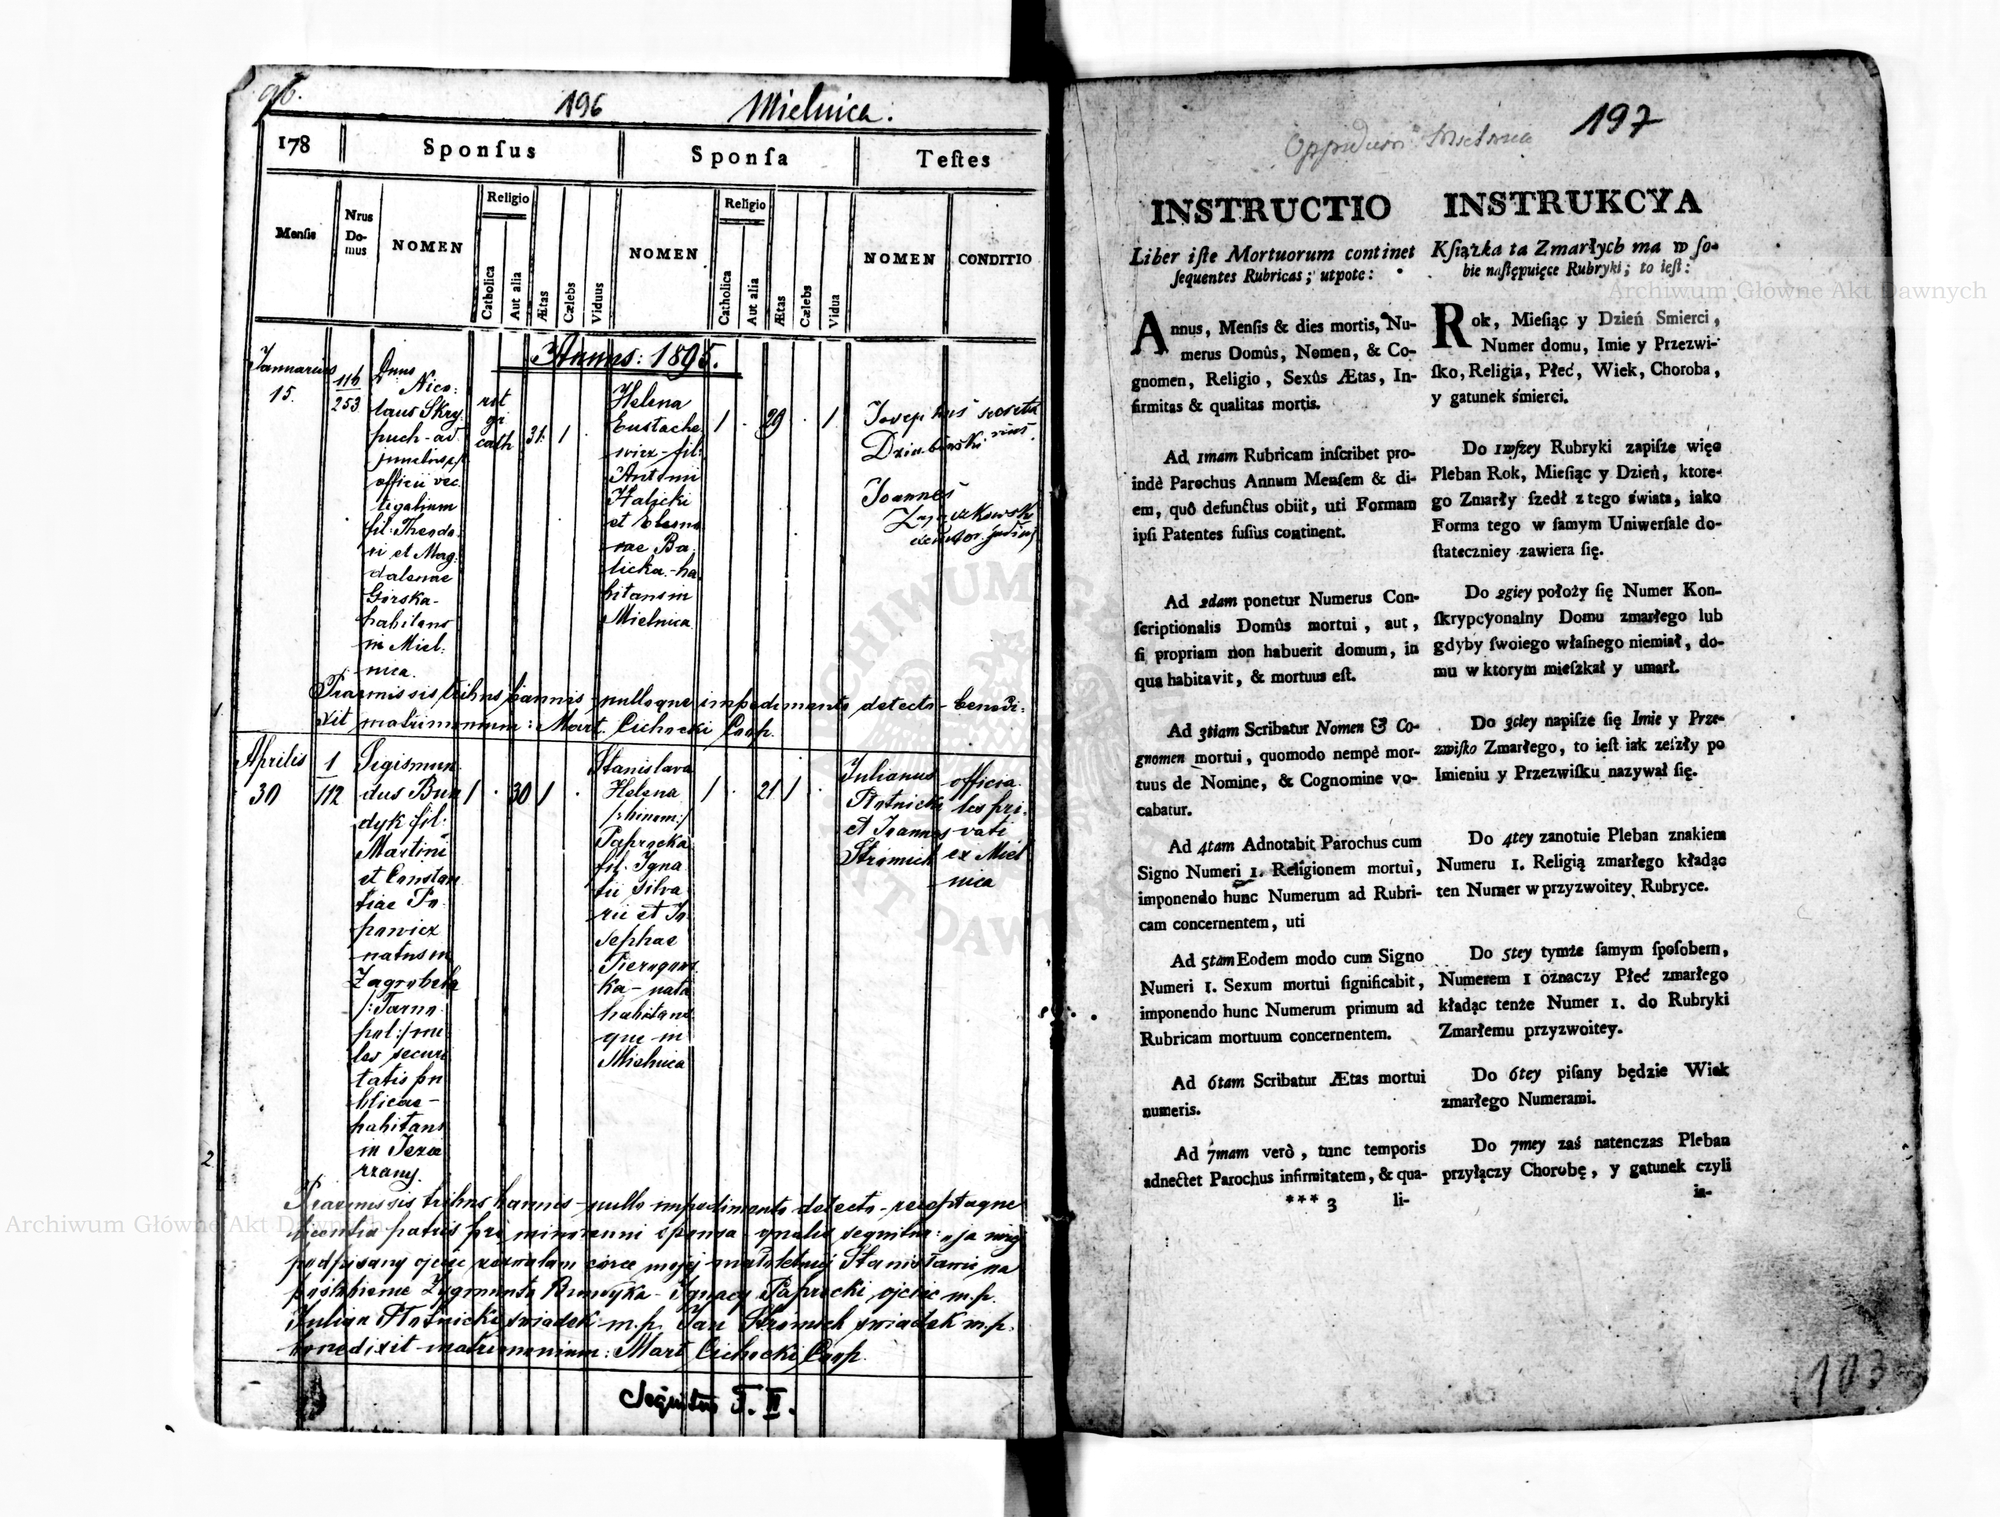 96.
196 Mielnica.
178 Sponſus Sponſa Teſtes
Menſis
Nrus Do-mus
NOMEN
Religio
Catholica
Aut alia
Ætas
Cælebs
Viduus
NOMEN
Religio
Catholica
Aut alia
Ætas
Cælebs
Vidua
NOMEN
CONDITIO
Annus: 1895.
Januarius
15.
116
253
Dnus
Nico:
laus Skry
puch - ad
officii vec
tigalium
fil: Theodo
ri et Mag
dalenae
Górska -
habitans
in Miel:
nica.
rit
gr
cath
31. 1 .
Helena
Eustache
wicz - fil:
Antoni
Halicki
et
rae Ba
licka - ha
bitans in
Mielnica
1 . 29 . 1
Josephus
Joannes
1
Praemissis tribus bannis - nulloque impedimento detecto - benedi:
xit matrimonium: Mart. Cichocki Coop.
Aprilis
30
1
112
Sigismun
dus Bun
dyk fil:
Martini
et Constan
tiae Po
powicz
natus in
Zagrobela
/:Tarno
pol:/ mi
les securi
tatis pu
blicae -
habitans
in Jezie
rzany.
1 . 30 1
Stanislava
Helena
/:binom:/
Paprocka
fil. Igna
tii Silve
rii et Jo
sephae
Pierogows
ka - nata
habitans
que in
Mielnica
1 . 21 1 .
Julianus
Płotnicki
et Joannes
Stromich
officia
les pri
vati
ex Miel
nica
2
Praemissis tribus bannis - nullo impedimento detecto - receptaque
licentia patris pro minorenni sponsa - qualis sequitur: „ja niżej
podpisany ojciec zezwalam córce mojej małoletniej Stanisławie na
poślubienie Zygmunta Bundyka - Ignacy Paprocki ojciec m.p.
Julian Płotnicki świadek m.p. Jan Stromich świadek m.p.
benedixit matrimonium: Mart Cichocki Coop.
Sequitur T. II.
197
Oppidum Mielnica
INSTRUCTIO
Liber iſte Mortuorum continet
ſequentes Rubricas; utpote:
Annus, Menſis & dies mortis, Nu-
merus Domûs, Nomen, & Co-
gnomen, Religio, Sexûs Ætas, In-
firmitas & qualitas mortis.
Ad 1mam Rubricam inſcribet pro-
indè Parochus Annum Menſem & di-
em, quô defunctus obiit, uti Formam
ipſi Patentes fuſius continent.
Ad 2dam ponetur Numerus Con-
ſcriptionalis Domûs mortui, aut,
ſi propriam non habuerit domum, in
qua habitavit, & mortuus eſt.
Ad 3tiam Scribatur Nomen & Co-
gnomen mortui, quomodo nempè mor-
tuus de Nomine, & Cognomine vo-
cabatur.
Ad 4tam Adnotabit Parochus cum
Signo Numeri 1. Religionem mortui,
imponendo hunc Numerum ad Rubri-
cam concernentem, uti
Ad 5tam Eodem modo cum Signo
Numeri 1. Sexum mortui ſignificabit,
imponendo hunc Numerum primum ad
Rubricam mortuum concernentem.
Ad 6tam Scribatur Ætas mortui
numeris.
Ad 7mam verò, tunc temporis
adnectet Parochus infirmitatem, & qua-
*** 3 li-
INSTRUKCYA
Kſiążka ta Zmarłych ma w ſo-
bie naſtępuięce Rubryki; to ieſt:
Rok, Mieſiąc y Dzień Smierci,
Numer domu, Imie y Przezwi-
ſko, Religia, Płeć, Wiek, Choroba,
y gatunek śmierci.
Do 1wſzey Rubryki zapiſze więc
Pleban Rok, Mieſiąc y Dzień, ktore-
go Zmarły ſzedł z tego świata, iako
Forma tego w ſamym Uniwerſale do-
ſtateczniey zawiera ſię.
Do 2giey położy ſię Numer Kon-
ſkrypcyonalny Domu zmarłego lub
gdyby ſwoiego właſnego niemiał, do-
mu w ktorym mieſzkał y umarł.
Do 3ciey napiſze ſię Imie y Prze-
zwiſko Zmarłego, to ieſt iak zeſzły po
Imieniu y Przezwiſku nazywał ſię.
Do 4tey zanotuie Pleban znakiem
Numeru 1. Religią zmarłego kładąc
ten Numer w przyzwoitey Rubryce.
Do 5tey tymże ſamym ſpoſobem,
Numerem 1 oznaczy Płeć zmarłego
kładąc tenże Numer 1. do Rubryki
Zmarłemu przyzwoitey.
Do 6tey piſany będzie Wiek
zmarłego Numerami.
Do 7mey zaś natenczas Pleban
przyłączy Chorobę, y gatunek czyli
ia-
103
Archiwum Główne Akt Dawnych
Archiwum Główne Akt Dawnych
ARCHIWUM
AKT DAWNYCH